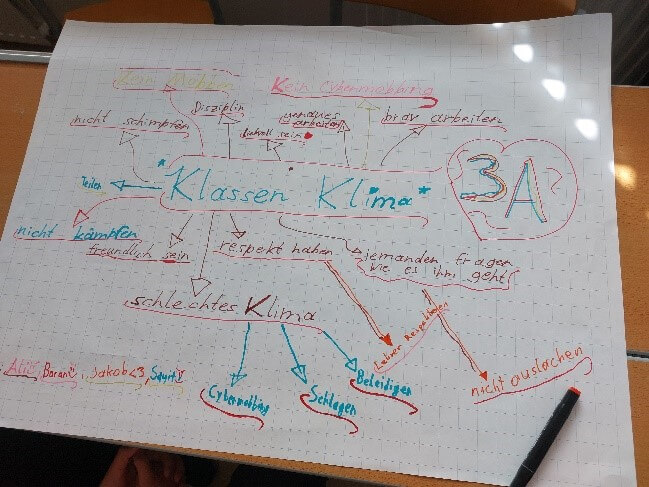 Kein Mobben
Kein Cybermobbing
Disziplin
genaues
arbeiten
brav arbeiten
nicht schimpfen
liebvoll sein
3A
*Klassen Klima*
Teilen
nicht kämpfen
freundlich sein
respekt haben
jemanden fragen
wie es ihm geht
schlechtes Klima
Lehrer Respektieren
nicht auslachen
Beleidigen
Schlagen
Cybermobbing
Baran
Jakob<3